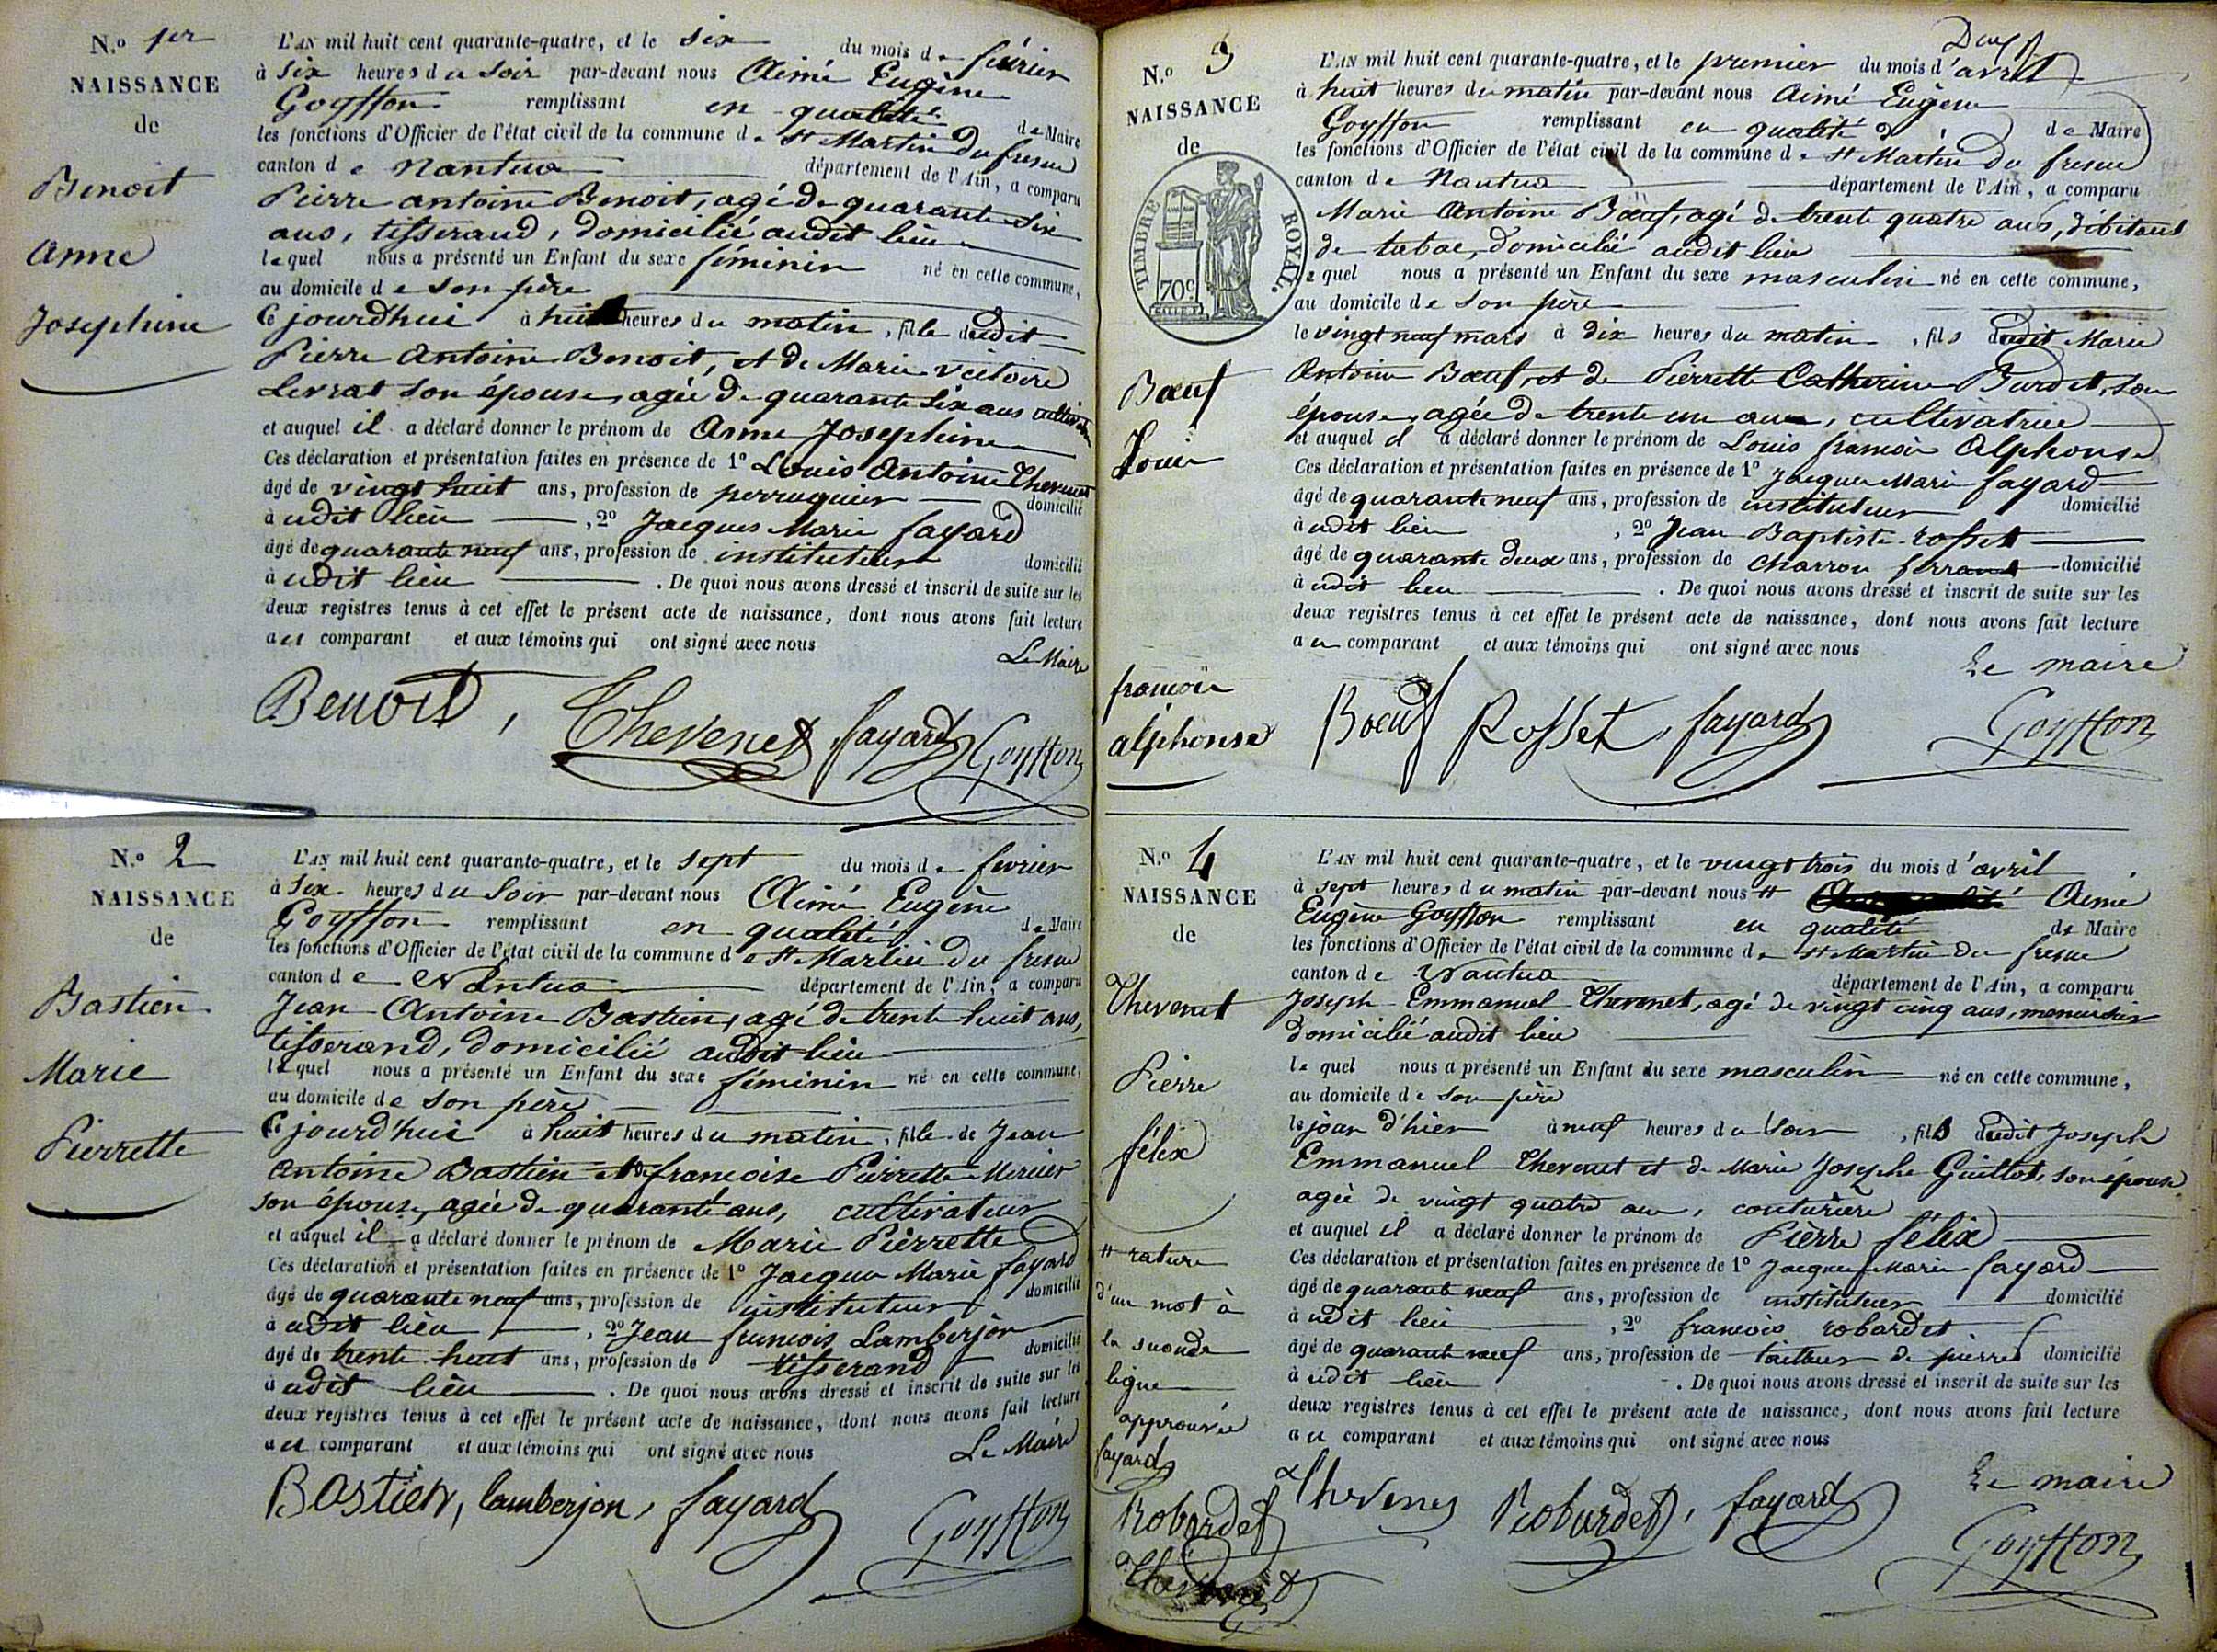 N.º 1er
NAISSANCE
de
Benoit
Anne
Josephine
L'AN mil huit cent quarante-quatre, et le six du mois de février
à six heures du soir par-devant nous Aimé Eugène
Goyffon remplissant en qualité de Maire
les fonctions d'Officier de l'état civil de la commune de St Martin du fresne
canton de Nantua département de l'Ain, a comparu
Pierre antoine Benoit, agé de quarante six
ans, tisserand, domicilié audit lieu
lequel nous a présenté un Enfant du sexe féminin né en cette commune,
au domicile de son père
Ce jourd'hui à huit heures du matin, fille dudit
Pierre Antoine Benoit, et de Marie victoire
Levrat son épouse, agée de quarante six ans
et auquel il a déclaré donner le prénom de Anne Josephine
Ces déclaration et présentation faites en présence de 1º Louis Antoine Thevenet
âgé de vingt huit ans, profession de perruquier domicilié
à udit lieu, 2º Jacques Marie fayard
âgé de quarante neuf ans, profession de instituteur domicilié
à udit lieu. De quoi nous avons dressé et inscrit de suite sur les
deux registres tenus à cet effet le présent acte de naissance, dont nous avons fait lecture
au comparant et aux témoins qui ont signé avec nous
Le Maire
Benoit, Thevenet fayard Goyffon
N.º 2
NAISSANCE
de
Bastien
Marie
Pierrette
L'AN mil huit cent quarante-quatre, et le sept du mois de fevrier
à six heures du soir par-devant nous Aimé Eugène
Goyffon remplissant en qualité de Maire
les fonctions d'Officier de l'état civil de la commune de St Martin du fresne
canton de Nantua département de l'Ain, a comparu
Jean Antoine Bastien, agé de trente huit ans,
tisserand, domicilié audit lieu
lequel nous a présenté un Enfant du sexe féminin né en cette commune,
au domicile de son père
Ce jourd'hui à huit heures du matin, fille de Jean
Antoine Bastien et de françoise Pierrette Mercier
son épouse, agée de quarante ans, cultivateur
et auquel il a déclaré donner le prénom de Marie Pierrette
Ces déclaration et présentation faites en présence de 1º Jacques Marie fayard
âgé de quarante neuf ans, profession de instituteur domicilié
à udit lieu, 2º Jean francois Lamberjon
âgé de trente huit ans, profession de tisserand domicilié
à udit lieu. De quoi nous avons dressé et inscrit de suite sur les
deux registres tenus à cet effet le présent acte de naissance, dont nous avons fait lecture
au comparant et aux témoins qui ont signé avec nous
Le Maire
Bastien, lamberjon, fayard Goyffon
N.º 3
NAISSANCE
de
TIMBRE ROYAL.
70c
Bœuf
Louis
françois
alphonse
L'AN mil huit cent quarante-quatre, et le premier du mois d'avril
à huit heures du matin par-devant nous Aimé Eugène
Goyffon remplissant en qualité d de Maire
les fonctions d'Officier de l'état civil de la commune de St Martin du fresne
canton de Nantua département de l'Ain, a comparu
Marie Antoine Bœuf, agé de trente quatre ans, débitant
de tabac, domicilié audit lieu
lequel nous a présenté un Enfant du sexe masculin né en cette commune,
au domicile de son père
le vingt neuf mars à dix heures du matin, fils dudit Marie
Antoine Bœuf, et de Pierrette Catherine Burdet, son
épouse, agée de trente un ans, cultivatrice
et auquel il a déclaré donner le prénom de Louis françois Alphonse
Ces déclaration et présentation faites en présence de 1º Jacques Marie fayard
âgé de quarante neuf ans, profession de instituteur domicilié
à udit lieu, 2º Jean Baptiste rosset
âgé de quarante deux ans, profession de charron ferrant domicilié
à udit lieu. De quoi nous avons dressé et inscrit de suite sur les
deux registres tenus à cet effet le présent acte de naissance, dont nous avons fait lecture
au comparant et aux témoins qui ont signé avec nous
Le maire
Boeuf Rosset, fayard Goyffon
N.º 4
NAISSANCE
de
Thevenet
Pierre
félix
# rature
d'un mot à
la seconde
ligne
approuvée
fayard
Robardet
Thevenet
L'AN mil huit cent quarante-quatre, et le vingt trois du mois d'avril
à sept heures du matin par-devant nous # Aimé
Eugène Goyffon remplissant en qualité de Maire
les fonctions d'Officier de l'état civil de la commune de St Martin du fresne
canton de Nantua département de l'Ain, a comparu
Joseph Emmanuel Thevenet, agé de vingt cinq ans, menuisier
domicilié audit lieu
lequel nous a présenté un Enfant du sexe masculin né en cette commune,
au domicile de son père
le jour d'hier à neuf heures du soir, fils dudit Joseph
Emmanuel Thevenet et de Marie Josephe Guillot, son épouse
agée de vingt quatre ans, couturière
et auquel il a déclaré donner le prénom de Pierre félix
Ces déclaration et présentation faites en présence de 1º Jacques Marie fayard
âgé de quarante neuf ans, profession de instituteur domicilié
à udit lieu, 2º francois robardet
âgé de quarante neuf ans, profession de tailleur de pierres domicilié
à udit lieu. De quoi nous avons dressé et inscrit de suite sur les
deux registres tenus à cet effet le présent acte de naissance, dont nous avons fait lecture
au comparant et aux témoins qui ont signé avec nous
Le maire
Thevenet Robardet, fayard Goyffon